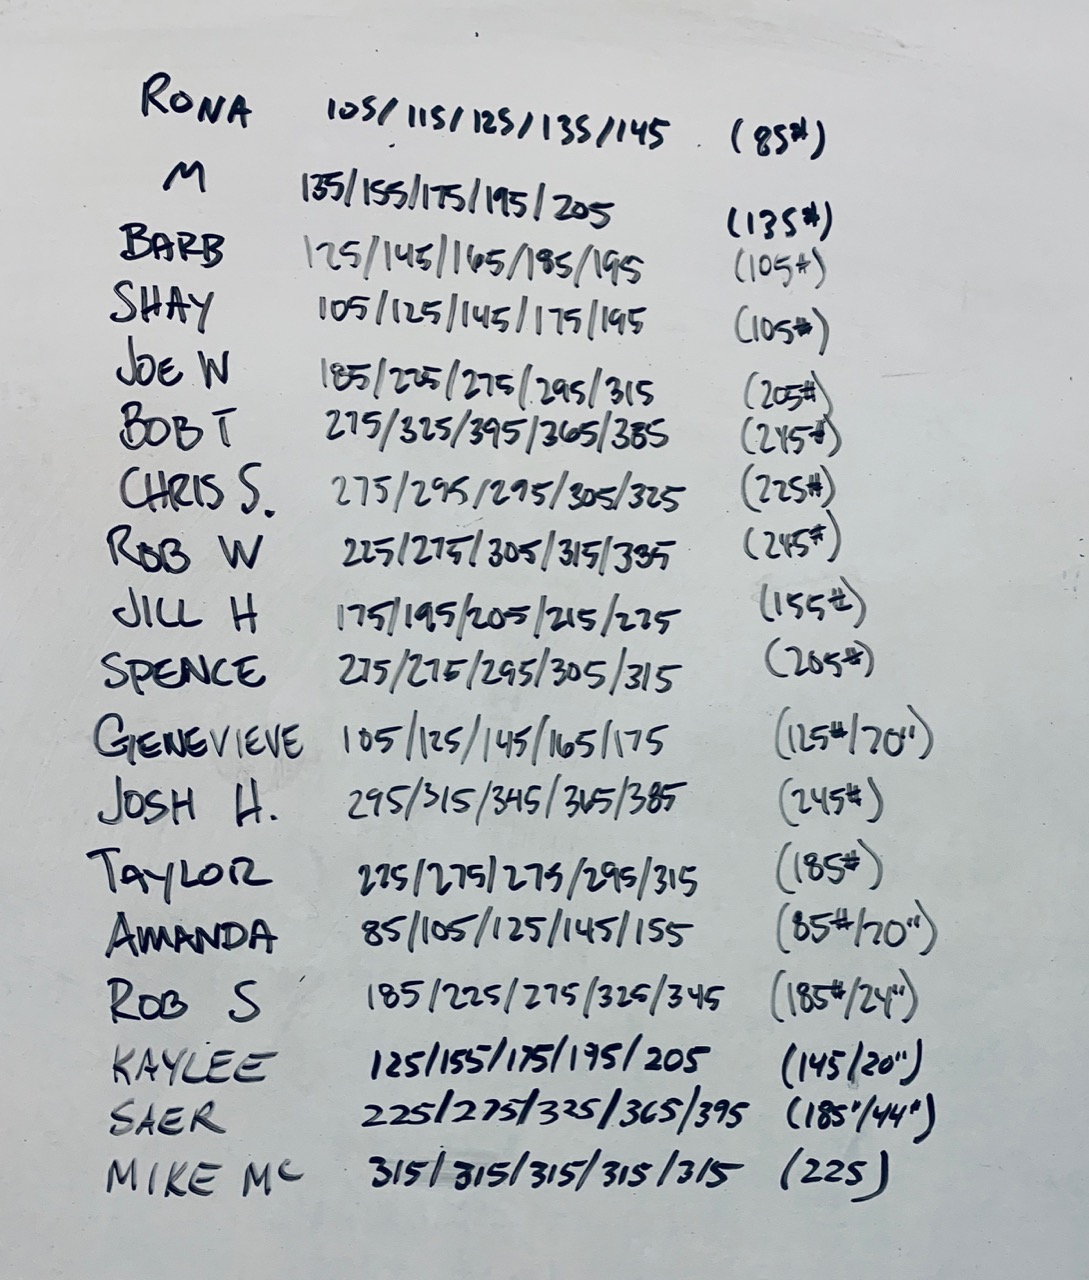 RONA 105/115/125/135/145 (85#)
M 135/155/175/195/205 (135#)
BARB 125/145/165/185/195 (105#)
SHAY 105/125/145/175/195 (105#)
JOE W 185/225/275/295/315 (205#)
BOB T 275/325/395/365/385 (245#)
CHRIS S. 275/295/295/305/325 (225#)
ROB W 225/275/305/315/335 (245#)
JILL H 175/195/205/215/225 (155#)
SPENCE 225/275/295/305/315 (205#)
GENEVIEVE 105/125/145/165/175 (125#/20")
JOSH H. 295/315/345/365/385 (245#)
TAYLOR 225/275/275/295/315 (185#)
AMANDA 85/105/125/145/155 (85#/20")
ROB S 185/225/275/325/345 (185#/24")
KAYLEE 125/155/175/195/205 (145/20")
SAER 225/275/325/365/395 (185#/44")
MIKE MC 315/315/315/315/315 (225)